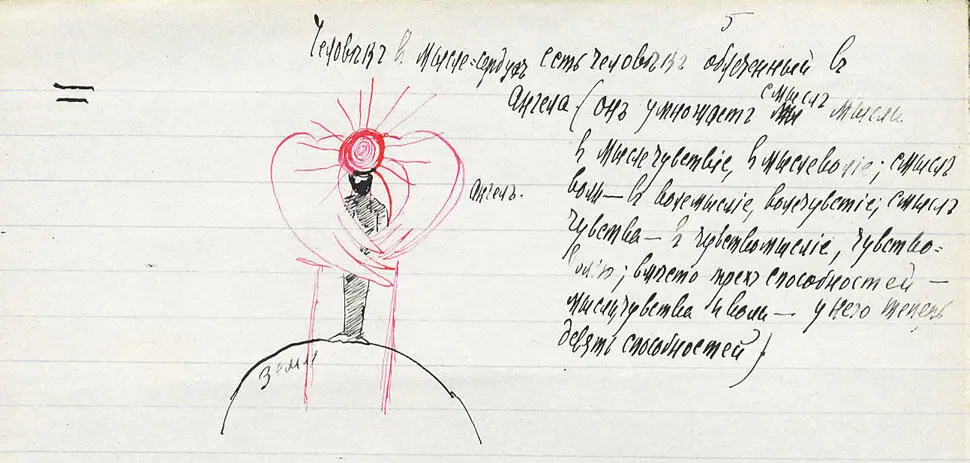 5
Человѣкъ въ мысле-сердцѣ есть человѣкъ облеченный въ
Ангела (онъ умножаетъ смыслъ мысли
въ мыслечувствіе, въ мыслеволіе; смыслъ
воли — въ волемысліе, волечувствіе; смыслъ
чувства — въ чувствомысліе, чувство-
воліе; вмѣсто трехъ способностей —
мысли чувства и воли — у него теперь
девять способностей)
=
Ангелъ.
Земля